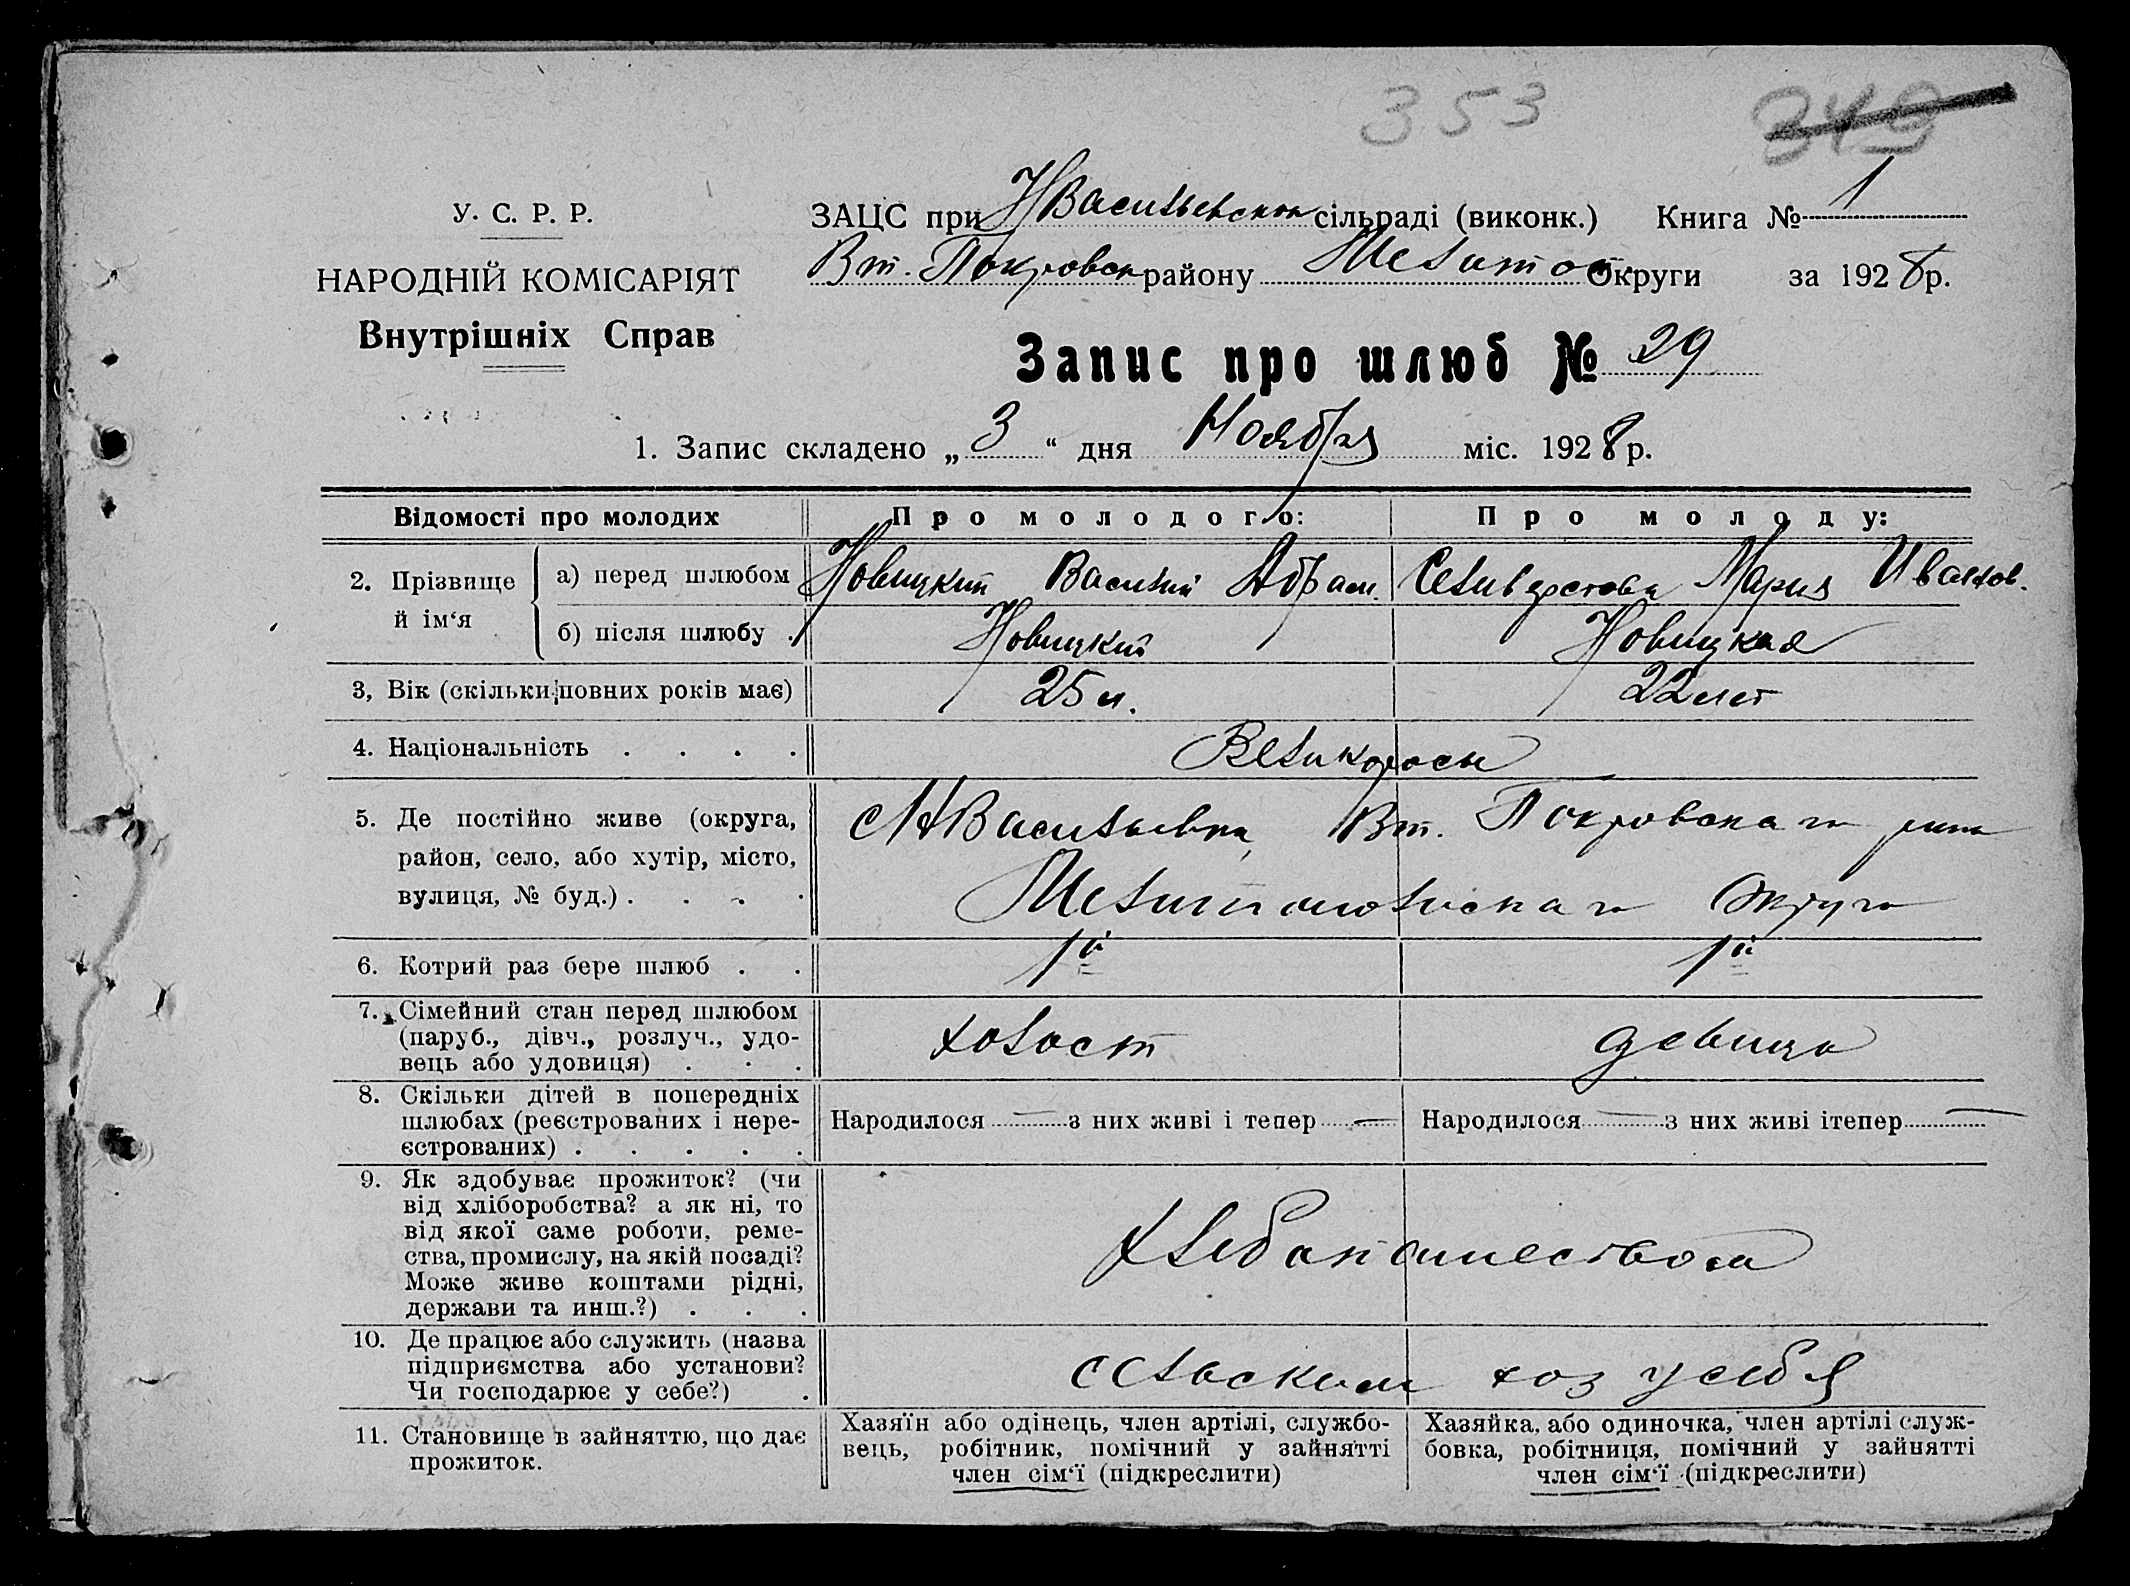 353 349
У. С. Р. Р.
НАРОДНІЙ КОМІСАРІЯТ
Внутрішніх Справ
ЗАЦС при НВасильевском сільраді (виконк.) Книга № 1
Вт. Покровск району Мелитоп. Округи за 1928 р.
Запис про шлюб № 29
1. Запис складено „ 3 “ дня Ноября міс. 1928 р.
Відомості про молодих Про молодого: Про молоду:
2. Прізвище й ім‘я а) перед шлюбом Новицкий Василий Абрам. Селиверстова Мария Иванов.
б) після шлюбу . Новицкий Новицкая
3, Вік (скільки повних років має) 25 л. 22 лет
4. Національність . . . . Великоросы
5. Де постійно живе (округа, с НВасильевка, Вт. Покровскаго
район, село, або хутір, місто,
вулиця, № буд.) . . . . Мелитопольскаго Округа
6. Котрий раз бере шлюб . . 1й 1й
7. Сімейний стан перед шлюбом
(паруб., дівч., розлуч., удо- холост девица
вець або удовиця) . . .
8. Скільки дітей в попередніх
шлюбах (реєстрованих і нере- Народилося — з них живі і тепер — Народилося — з них живі ітепер —
єстрованих) . . . . .
9. Як здобуває прожиток? (чи
від хліборобства? а як ні, то
від якої саме роботи, реме-
ства, промислу, на якій посаді? Хлебопашеством
Може живе коштами рідні,
держави та инш.?) . . .
10. Де працює або служить (назва
підприємства або установи? сельским хоз у себя
Чи господарює у себе?) .
11. Становище в зайняттю, що дає
прожиток.
Хазяїн або одінець, член артілі, службо-
вець, робітник, помічний у зайнятті
член сім‘ї (підкреслити)
Хазяйка, або одиночка, член артілі служ-
бовка, робітниця, помічний у зайнятті
член сім‘ї (підкреслити)